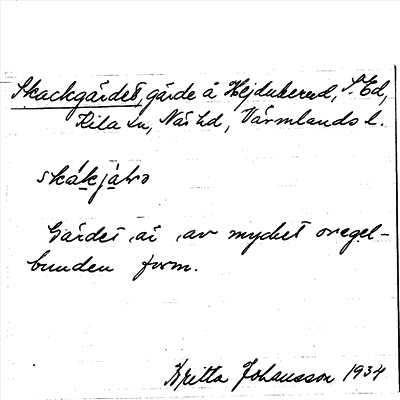 Skackgärdet, gärde å Hejdukerud, S. Ed,
Kila sn, Näs hd, Värmlands l.
skákjàlɜ
Gärdet är av mycket oregel-
bunden form.
Britta Johansson 1934